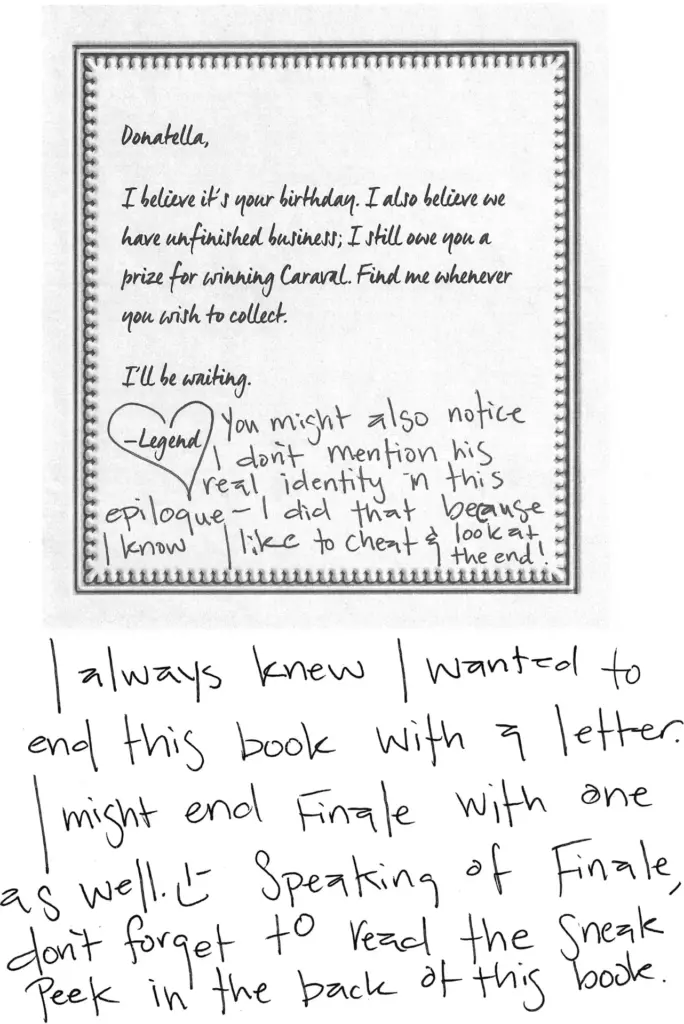 Donatella,
I believe it's your birthday. I also believe we
have unfinished business; I still owe you a
prize for winning Caraval. Find me whenever
you wish to collect.
I'll be waiting.
–Legend
You might also notice
I don't mention his
real identity in this
epilogue – I did that because
I know I like to cheat & look at
the end!
I always knew I wanted to
end this book with a letter.
I might end Finale with one
as well. Speaking of Finale,
don't forget to read the Sneak
Peek in the back of this book.